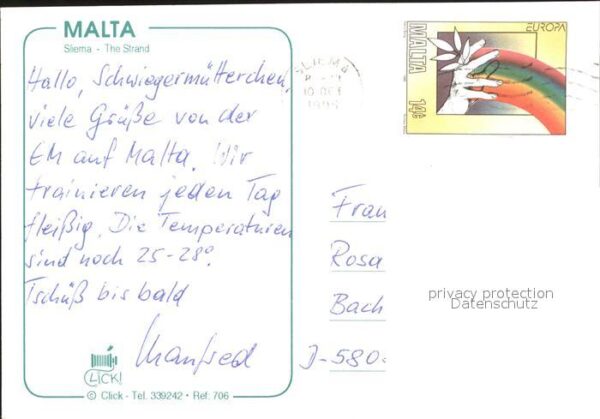 MALTA
Sliema - The Strand
Hallo, Schwiegermütterchen,
viele Grüße von der
EM auf Malta. Wir
trainieren jeden Tag
fleißig. Die Temperaturen
sind noch 25-28°.
Tschüß bis bald
Manfred
CLICK!
© Click - Tel. 339242 • Ref: 706
SLIEMA
10 OCT
EUROPA
MALTA
14c
Frau
Rosa
Bach
D-580
privacy protection
Datenschutz